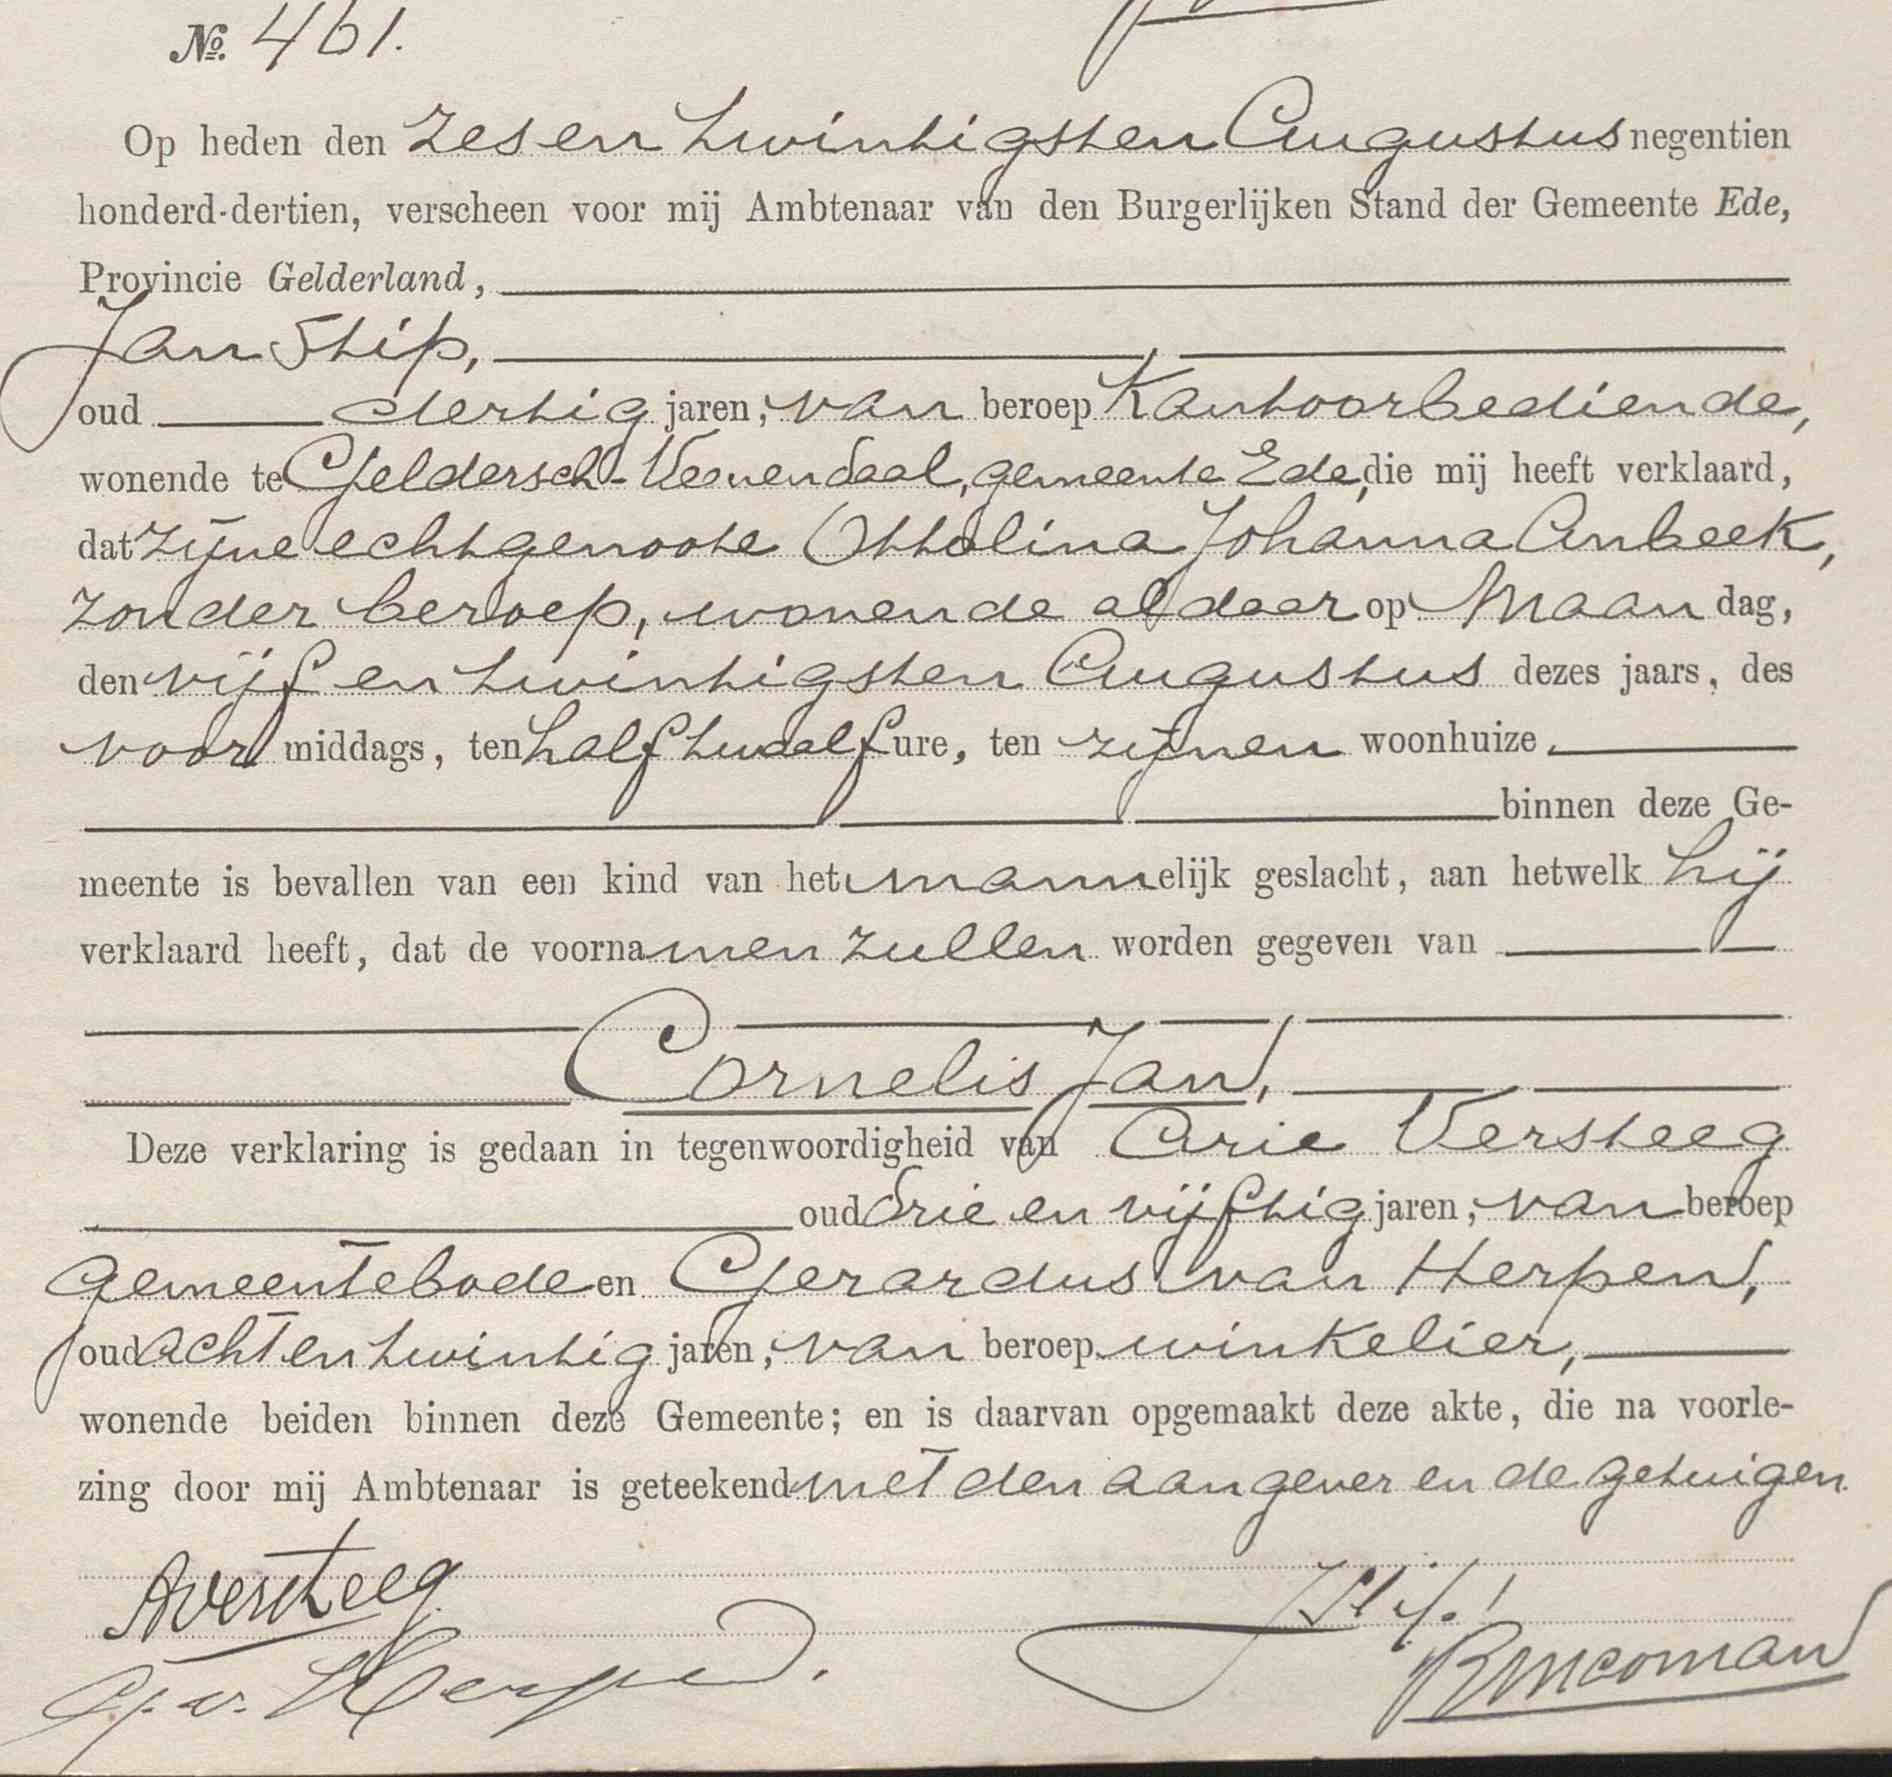 No. 461.
Op heden den zes en twintigsten Augustus negentien
honderd-dertien, verscheen voor mij Ambtenaar van den Burgerlijken Stand der Gemeente Ede,
Provincie Gelderland,
Jan Stip,
oud dertig jaren, van beroep Kantoorbediende,
wonende te Geldersch-Veenendaal, gemeente Ede, die mij heeft verklaard,
dat zijne echtgenoote Ottolina Johanna Anbeek,
zonder beroep, wonende aldaar op Maandag,
den vijf en twintigsten Augustus dezes jaars, des
voormiddags, ten half twaalf ure, ten zijnen woonhuize
binnen deze Ge-
meente is bevallen van een kind van het mannelijk geslacht, aan hetwelk hij
verklaard heeft, dat de voornamen zullen worden gegeven van
Cornelis Jan,
Deze verklaring is gedaan in tegenwoordigheid van Arie Versteeg
oud drie en vijftig jaren, van beroep
gemeentebode en Gerardus van Herpen,
oud acht en twintig jaren, van beroep winkelier,
wonende beiden binnen deze Gemeente; en is daarvan opgemaakt deze akte, die na voorle-
zing door mij Ambtenaar is geteekend met den aangever en de getuigen.
AVersteeg
J Stip.
G. v. Herpen.